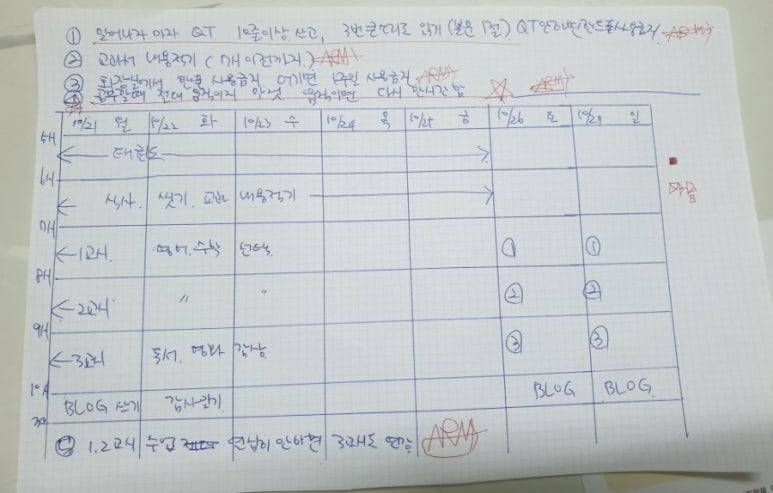 ① 일어나자 마자 QT 10줄이상 쓰고, 3번 큰소리로 읽기 (본문 1절) QT 안하면 핸드폰사용금지.
② 교과서 내용적기 ( 7시 이전까지.) ARM
③ 화장실에서 핸폰 사용금지 어기면 1주일 사용금지 ARM
④ 공부할때 절대 움직이지 않것 움직이면 다시 한시간 함 ARM
10/21 월 10/22 화 10/23 수 10/24 목 10/25 금 10/26 토 10/27 일
5시
태권도
6시
식사. 씻기. 교과 내용적기
7시
1교시. 영어. 수학 선택. ① ①
8시
2교시 〃 〃 ② ②
9시
3교시 독서. 영화 감상 ③ ③
10시
BLOG 쓰기 감사일기 BLOG BLOG
30
1.2교시 수업 열심히 안하면 3교시도 연장 ARM